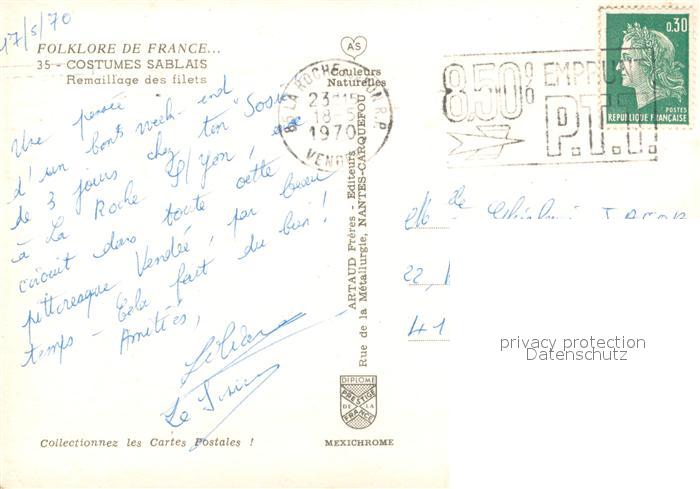 17/5/70
FOLKLORE DE FRANCE...
35 - COSTUMES SABLAIS
Remaillage des filets
AS
Couleurs
Naturelles
85 LA ROCHE S YON R.P.
23H15
18-5
1970
VENDEE
8,50% EMPRUNT
P.T.T.
0,30
POSTES
REPUBLIQUE FRANÇAISE
Une pensée
d'un bon week-end
de 3 jours chez ton "Sosie"
à La Roche S/Yon,
circuit dans toute cette
pittoresque Vendée, par beau
temps - Cela fait du bien !
Amitiés,
ARTAUD Frères - Editeurs
Rue de la Métallurgie, NANTES-CARQUEFOU
de
22,
41
privacy protection
Datenschutz
DIPLOME
PRESTIGE
DE LA
FRANCE
Collectionnez les Cartes Postales !
MEXICHROME